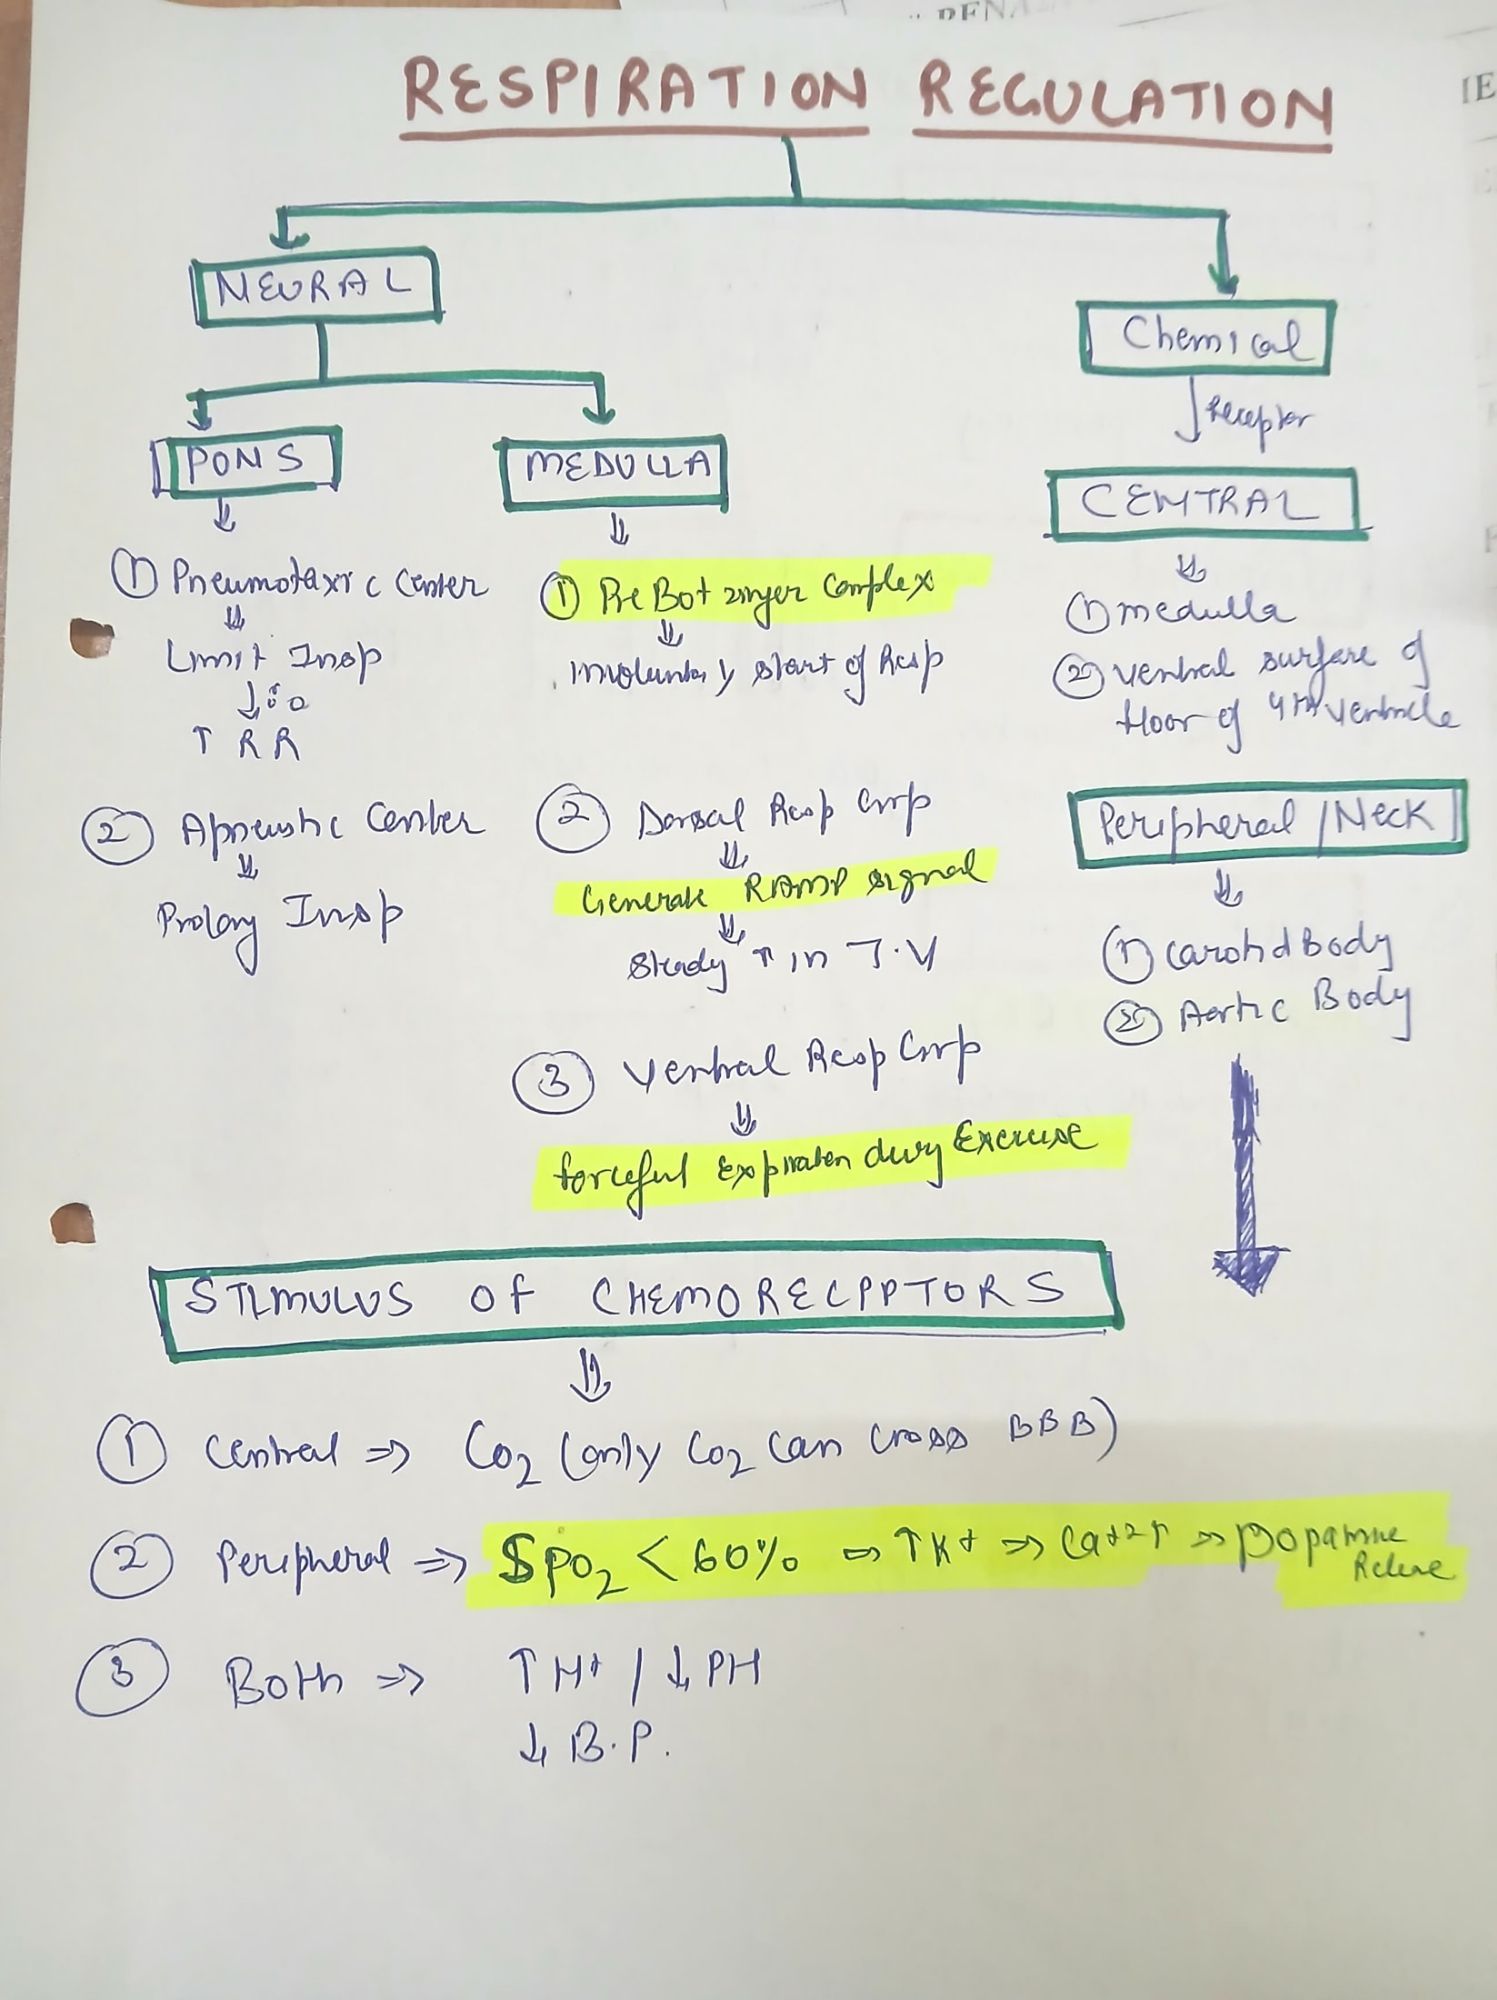 RESPIRATION REGULATION
NEURAL
Chemical
receptor
PONS
MEDULLA
CENTRAL
① Pneumotaxic Center
Limit Insp
↑ RR
② Apneustic Center
Prolong Insp
① Pre Botzinger Complex
Involuntary start of Resp
② Dorsal Resp Grp
Generate RAMP signal
Steady ↑ in T.V
③ Ventral Resp Grp
forceful Expiration during Exercise
① medulla
② ventral surface of
floor of 4th ventricle
Peripheral / Neck
① Carotid Body
② Aortic Body
STIMULUS OF CHEMORECPPTORS
① Central ⇒ CO2 (only CO2 can cross BBB)
② Peripheral ⇒ SPO2 < 60% ⇒ ↑K+ ⇒ Ca+2↑ ⇒ Dopamine
Release
③ Both ⇒ ↑H+ / ↓PH
↓ B.P.